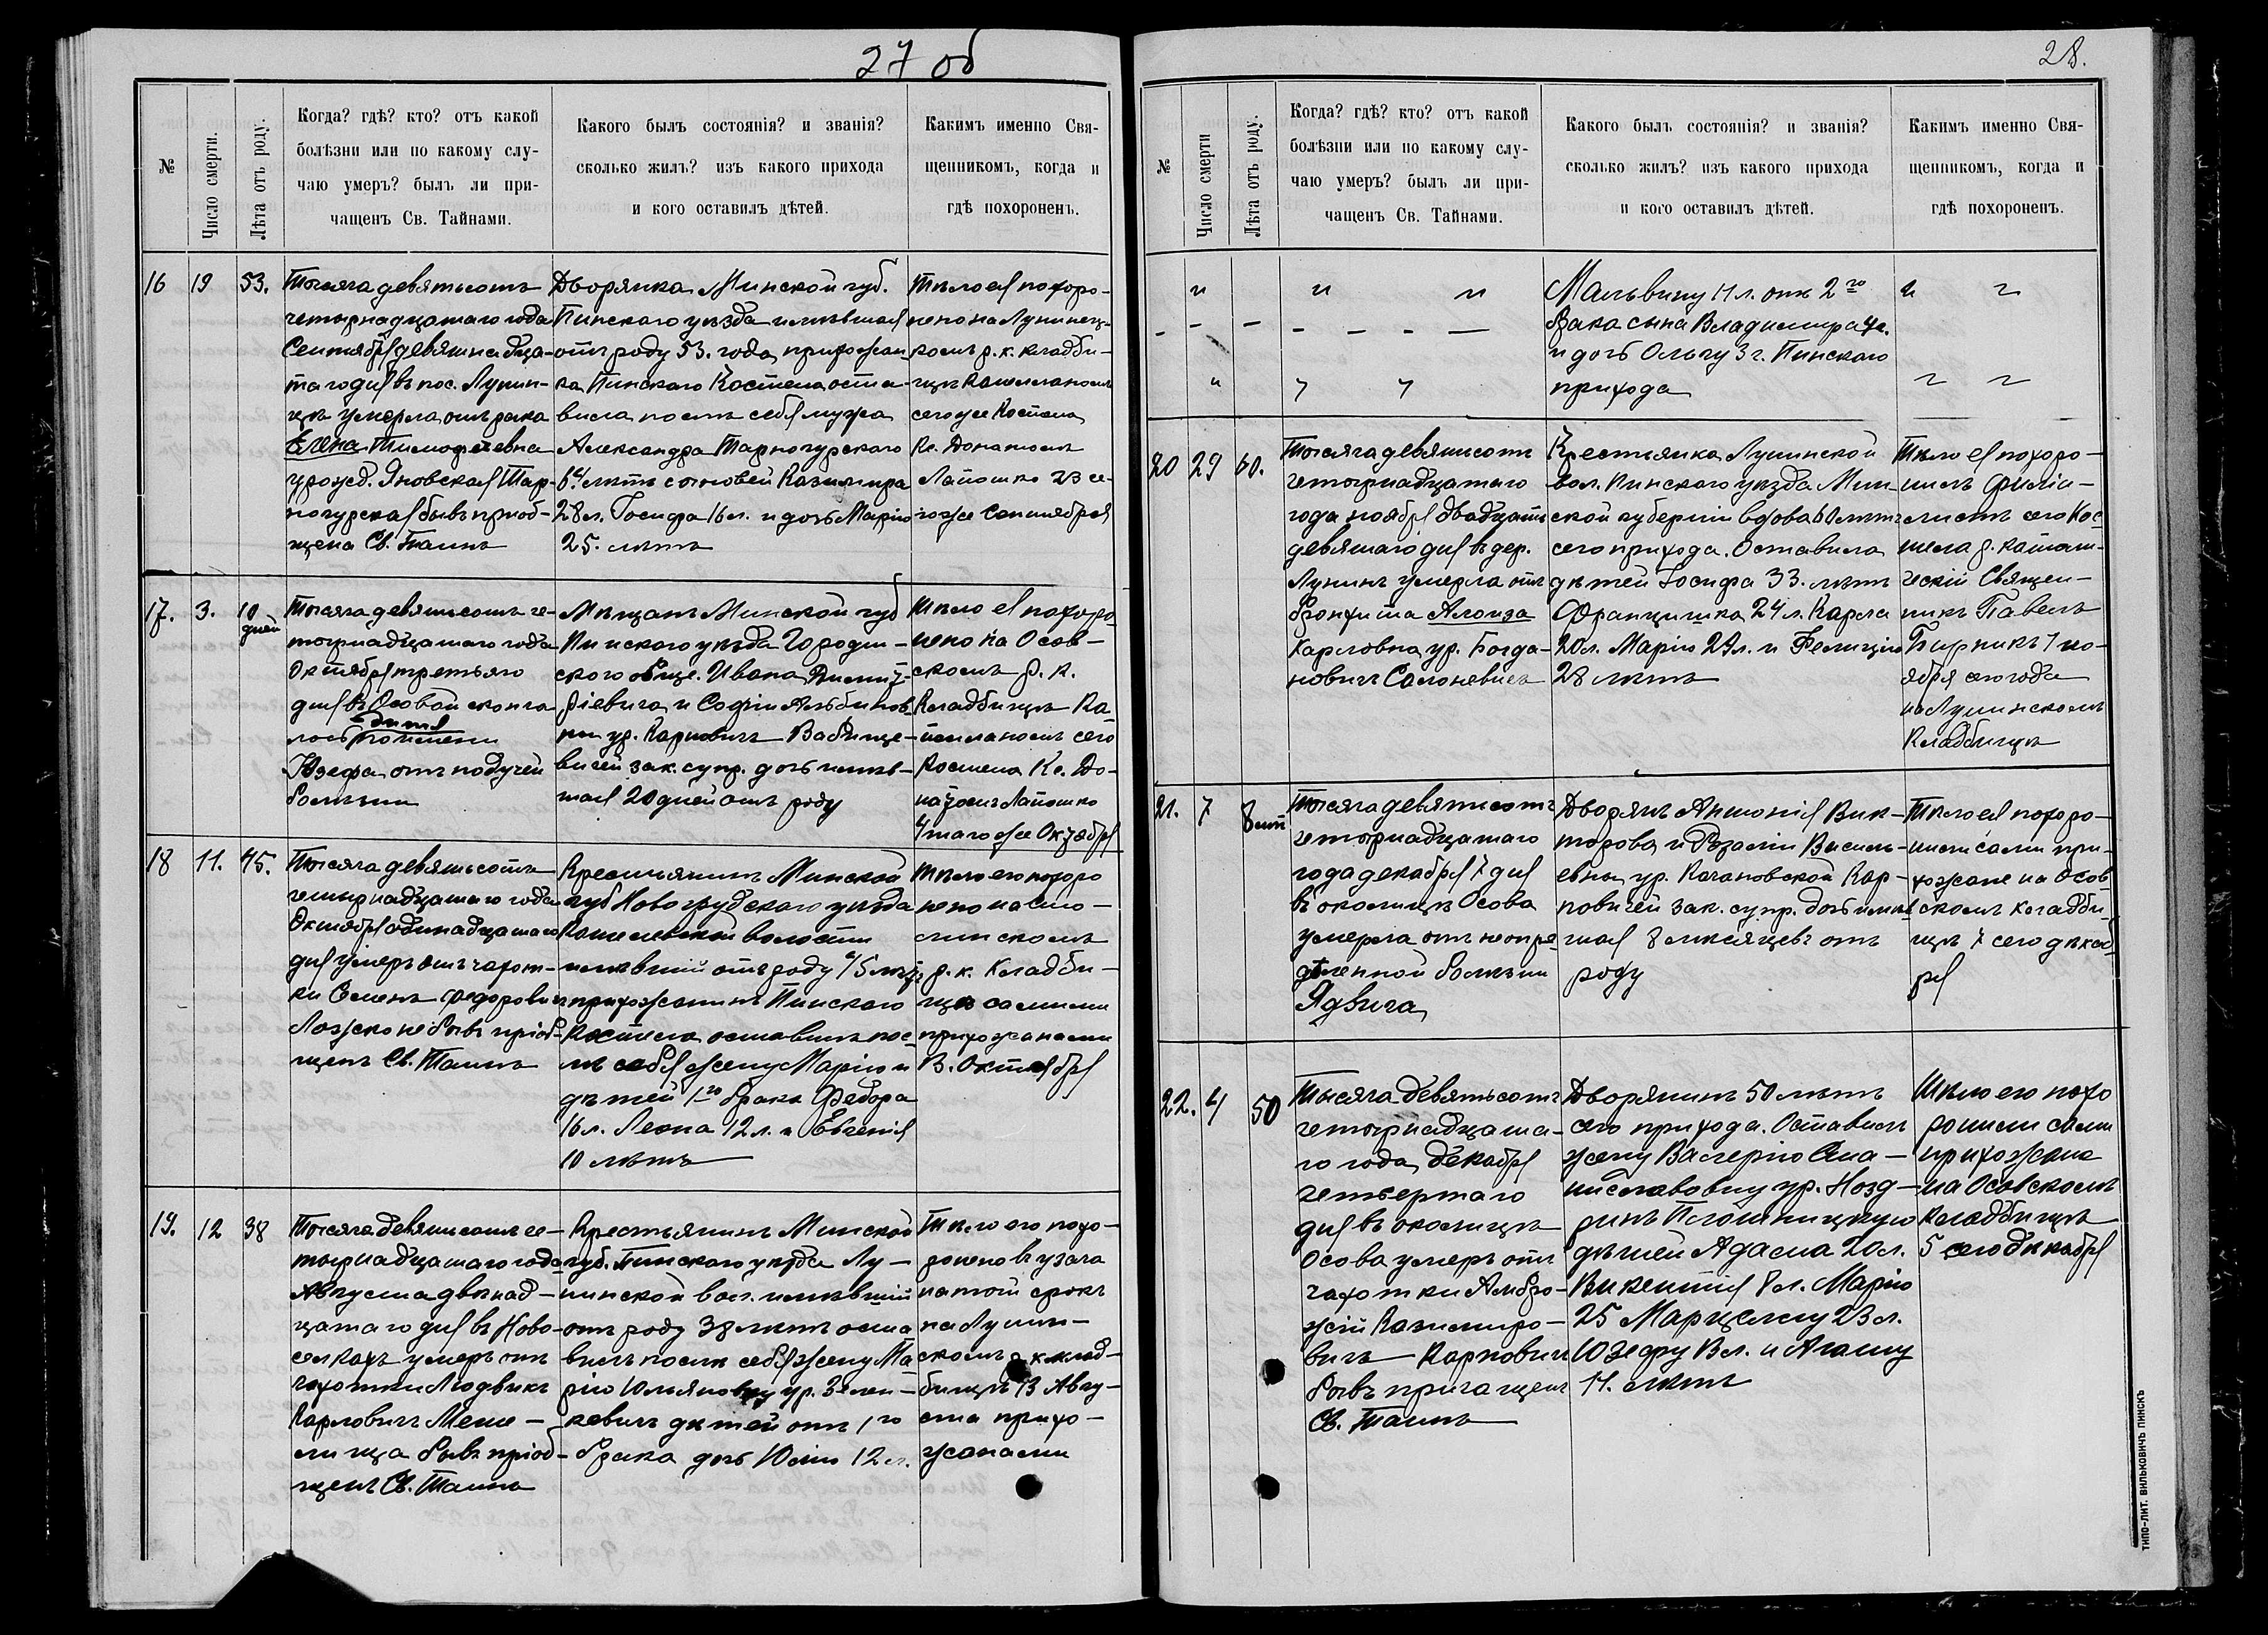 27 об
№
Число смерти.
Лѣта отъ роду.
Когда? гдѣ? кто? отъ какой
болѣзни или по какому слу-
чаю умеръ? былъ ли при-
чащенъ Св. Тайнами.
Какого былъ состоянія? и званія?
сколько жилъ? изъ какого прихода
и кого оставилъ дѣтей.
Какимъ именно Свя-
щенникомъ, когда и
гдѣ похороненъ.
16
19
53.
Тысяча девятьсотъ
четырнадцатаго года
Сентября девятнадца-
таго дня въ пос. Лунин-
цѣ умерла отъ рака
Елена Тимофеевна
урожд. Яновская Тар-
ногурская бывъ приоб-
щена Св. Таинъ
Дворянка Минской губ.
Пинскаго уѣзда имѣвшая
отъ роду 53. года, прихожан-
ка Пинскаго Костела оста-
вила послѣ себя мужа
Александра Тарногурского
64 лѣтъ сыновей Казимира
28 л. Іосифа 16 л. и дочь Марію
25. лѣтъ
Тѣло ея похоро-
нено на Лунинец-
комъ р. к. кладби-
щѣ Капелланомъ
сего же Костела
Кс. Донатомъ
Лапошко 23 се-
гоже Сентября
17.
3.
10
дней
Тысяча девятьсотъ че-
тырнадцатаго года
Октября третьяго
дня въ Осовой сконча-
лось дитя
Юзефа отъ падучей
болѣзни
Мѣщанъ Минской губ
Пинскаго уѣзда Городи-
скаго обще. Ивана
и Софіи Альбинов-
ны ур. Карповичъ
зак. супр. дочь имѣв-
шая 20 дней отъ роду
Тѣло ея похоро-
нено на Осов-
скомъ р. к.
Кладбищѣ Ка-
пелланомъ сего
Костела Кс. До-
натомъ Лапошко
4 того же Октября
18
11.
45.
Тысяча девятьсотъ
четырнадцатаго года
Октября одинадцатаго
дня умеръ отъ чахот-
ки Семенъ Федорович
Ложско не бывъ пріоб-
щенъ Св. Таинъ
Крестьянинъ Минской
губ Новогрудскаго уѣзда
Кошелевской волости
имѣвшій отъ роду 45 лѣтъ
прихожанинъ Пинскаго
Костела оставилъ пос-
лѣ себя жену Марію и
дѣтей 1го брака Федора
16 л. Леона 12 л. и Евгенія
10 лѣтъ
Тѣло его похоро
нено на
р. к. Кладби-
щѣ самими
прихожанами
13. Октября
19.
12
38
Тысяча девятьсотъ че-
тырнадцатаго года
Августа двѣнад-
цатаго дня въ Ново-
селкахъ умеръ отъ
чахотки Людвикъ
Карловичъ Меше-
лица бывъ пріоб-
щенъ Св. Таинъ
Крестьянинъ Минской
губ. Пинскаго уѣзда Лу-
нинской вол. имѣвшій
отъ роду 38 лѣтъ оста
вилъ послѣ себя жену Ма
рію Юльяновну ур. Зелен-
кевичъ дѣтей отъ 1го
брака дочь Юлію 12 л.
Тѣло его похо-
ронено
на Лунин-
скомъ р к клад-
бищѣ 13 Авгу-
ста прихо-
жанами
28.
№
Число смерти
Лѣта отъ роду.
Когда? гдѣ? кто? отъ какой
болѣзни или по какому слу-
чаю умеръ? былъ ли при-
чащенъ Св. Тайнами.
Какого былъ состоянія? и званія?
сколько жилъ? изъ какого прихода
и кого оставилъ дѣтей.
Какимъ именно Свя-
щенникомъ, когда и
гдѣ похороненъ.
Мальвину 11 л. отъ 2го
брака сына Владимира 4 г.
и дочь Ольгу 3 г. Пинскаго
прихода
20
29
60.
Тысяча девятьсотъ
четырнадцатаго
года ноября двадцать
девятаго дня въ дер.
Лунинъ умерла отъ
бронхита Алоиза
Карловна ур. Богда-
новичъ Салоневичъ
Крестьянка Лунинской
вол. Пинскаго уѣзда Мин-
ской губерніи вдова 60 лѣтъ
сего прихода. Оставила
дѣтей Іосифа 33. лѣтъ
Францишка 24 л. Карла
20 л. Марію 29 л. и Фелицію
28 лѣтъ
Тѣло ея похоро-
нилъ филіа-
листъ сего Кос-
тела р. катали-
ческій Священ-
никъ Павелъ
Бирникъ 1 но-
ября сего года
на Лунинскомъ
Кладбищѣ
21.
7
8 мѣс
Тысяча девятьсотъ
четырнадцатаго
года декабря 7 дня
въ околицѣ Осова
умерла отъ неопре-
дѣленной болѣзни
Ядвига
Дворянъ Антонія Вик-
торова и Розаліи Василь-
евны, ур. Качановской Кар-
повичей зак. супр. дочь имѣв
шая 8 мѣсяцевъ отъ
роду
Тѣло ея похоро-
нили сами при-
хожане на Осов-
скомъ кладби-
щѣ 7 сего декаб
ря
22.
4
50
Тысяча девятьсотъ
четырнадцата-
го года, декабря
четвертаго
дня въ околицѣ
Осова умеръ отъ
чахотки Амбро-
жій Казимиро-
вичъ Карповичъ
бывъ причащенъ
Св. Таинъ
Дворянинъ 50 лѣтъ
сего прихода. Оставилъ
жену Валерію Ста-
ниславовну ур. Нозд-
ринъ Плотницкую
дѣтей Адама 20 л.
Викентія 8 л. Марію
25 Марцелю 23 л.
Юзефу 13 л. и Агату
11. лѣтъ
Тѣло его похо
ронили сами
прихожане
на Осовскомъ
Кладбищѣ
5 сего декабря
ТИПО-ЛИТ. ВИЛЬКОВИЧЪ ПИНСКЪ